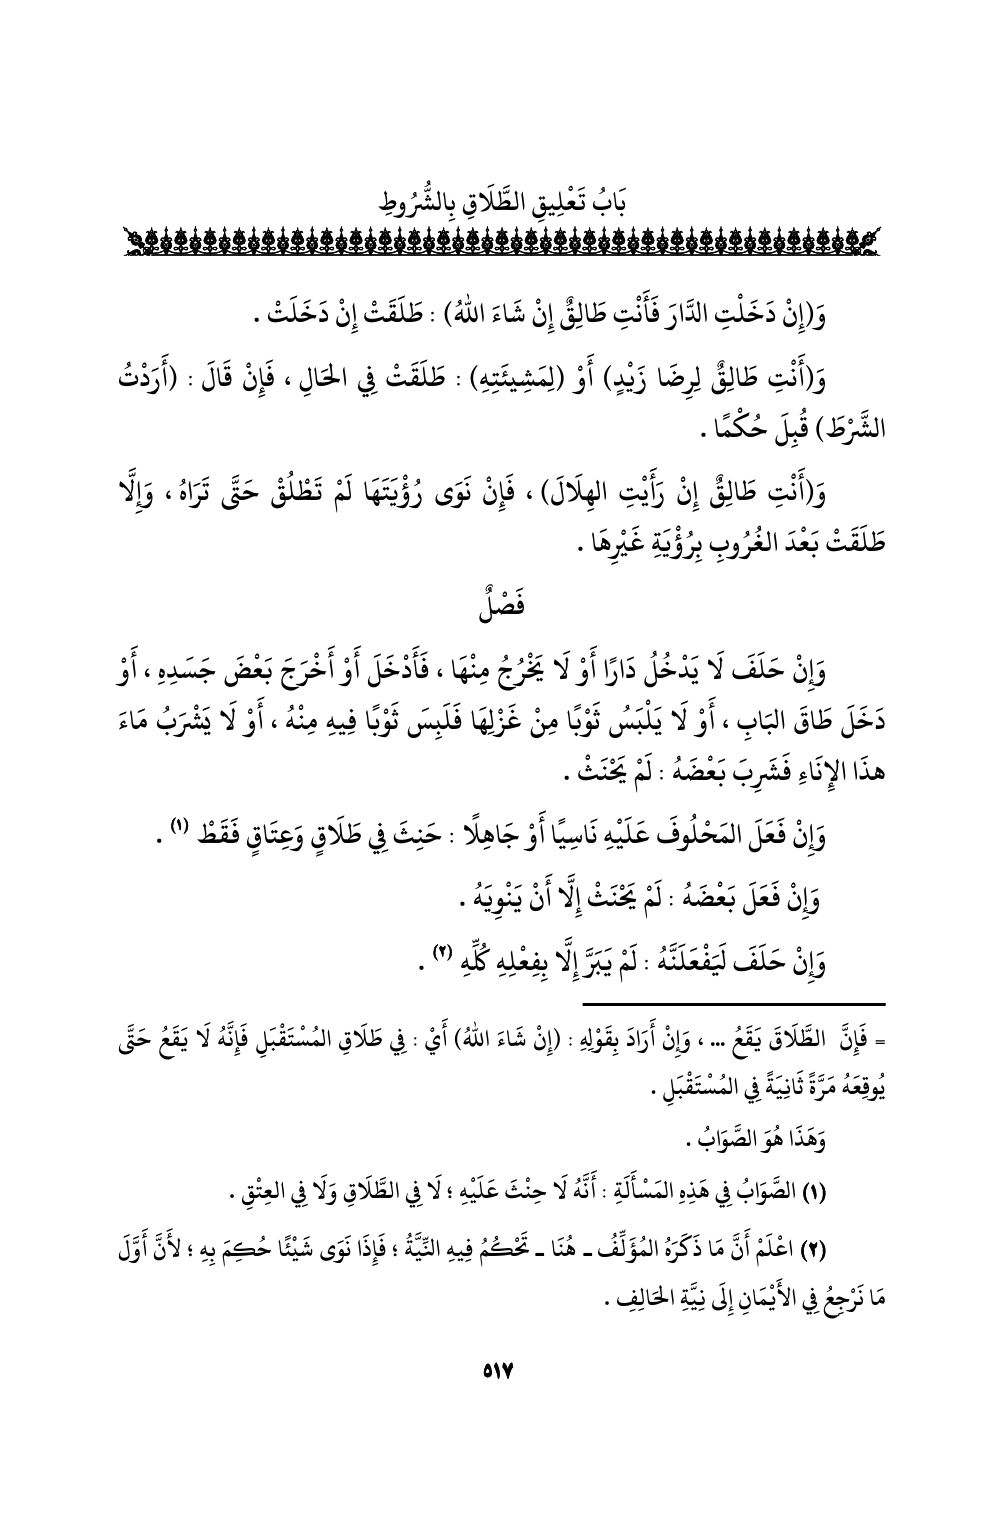 بَابُ تَعْلِيقِ الطَّلَاقِ بِالشُّرُوطِ
وَ(إِنْ دَخَلْتِ الدَّارَ فَأَنْتِ طَالِقٌ إِنْ شَاءَ اللهُ) : طَلَقَتْ إِنْ دَخَلَتْ .
وَ(أَنْتِ طَالِقٌ لِرِضَا زَيْدٍ) أَوْ (لِمَشِيئَتِهِ) : طَلَقَتْ فِي الحَالِ ، فَإِنْ قَالَ : (أَرَدْتُ
الشَّرْطَ) قُبِلَ حُكْمًا .
وَ(أَنْتِ طَالِقٌ إِنْ رَأَيْتِ الهِلَالَ) ، فَإِنْ نَوَى رُؤْيَتَهَا لَمْ تَطْلُقْ حَتَّى تَرَاهُ ، وَإِلَّا
طَلَقَتْ بَعْدَ الغُرُوبِ بِرُؤْيَةِ غَيْرِهَا .
فَصْلٌ
وَإِنْ حَلَفَ لَا يَدْخُلُ دَارًا أَوْ لَا يَخْرُجُ مِنْهَا ، فَأَدْخَلَ أَوْ أَخْرَجَ بَعْضَ جَسَدِهِ ، أَوْ
دَخَلَ طَاقَ البَابِ ، أَوْ لَا يَلْبَسُ ثَوْبًا مِنْ غَزْلِهَا فَلَبِسَ ثَوْبًا فِيهِ مِنْهُ ، أَوْ لَا يَشْرَبُ مَاءَ
هذَا الإِنَاءِ فَشَرِبَ بَعْضَهُ : لَمْ يَحْنَثْ .
وَإِنْ فَعَلَ المَحْلُوفَ عَلَيْهِ نَاسِيًا أَوْ جَاهِلًا : حَنِثَ فِي طَلَاقٍ وَعِتَاقٍ فَقَطْ (١) .
وَإِنْ فَعَلَ بَعْضَهُ : لَمْ يَحْنَثْ إِلَّا أَنْ يَنْوِيَهُ .
وَإِنْ حَلَفَ لَيَفْعَلَنَّهُ : لَمْ يَبَرَّ إِلَّا بِفِعْلِهِ كُلِّهِ (٢) .
= فَإِنَّ الطَّلَاقَ يَقَعُ ... ، وَإِنْ أَرَادَ بِقَوْلِهِ : (إِنْ شَاءَ اللهُ) أَيْ : فِي طَلَاقِ المُسْتَقْبَلِ فَإِنَّهُ لَا يَقَعُ حَتَّى
يُوقِعَهُ مَرَّةً ثَانِيَةً فِي المُسْتَقْبَلِ .
وَهَذَا هُوَ الصَّوَابُ .
(١) الصَّوَابُ فِي هَذِهِ المَسْأَلَةِ : أَنَّهُ لَا حِنْثَ عَلَيْهِ ؛ لَا فِي الطَّلَاقِ وَلَا فِي العِتْقِ .
(٢) اعْلَمْ أَنَّ مَا ذَكَرَهُ المُؤَلِّفُ ـ هُنَا ـ تَحْكُمُ فِيهِ النِّيَّةُ ؛ فَإِذَا نَوَى شَيْئًا حُكِمَ بِهِ ؛ لأَنَّ أَوَّلَ
مَا نَرْجِعُ فِي الأَيْمَانِ إِلَى نِيَّةِ الحَالِفِ .
٥١٧